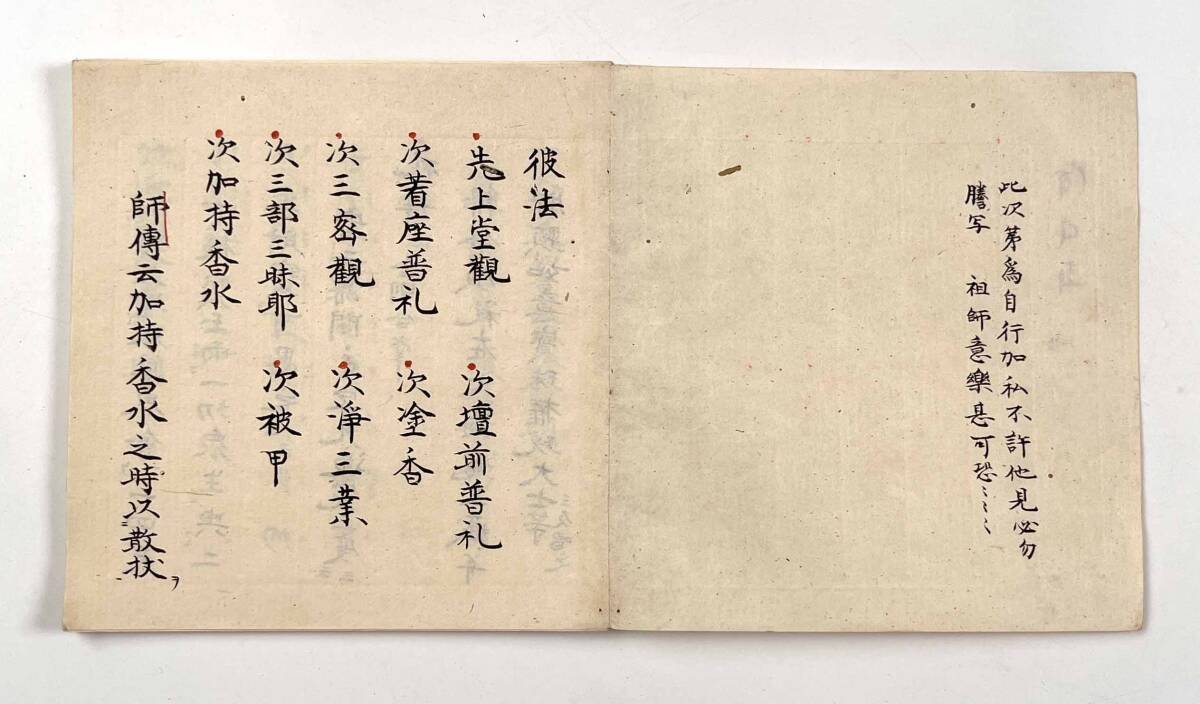 此次第為自行加私不許他見必勿
謄写　祖師意樂甚可恐〻〻〻
彼法
先上堂觀　次壇前普礼
次着座普礼　次塗香
次三密觀　次淨三業
次三部三昧耶　次被甲
次加持香水
師傳云加持香水之時以散杖ヲ